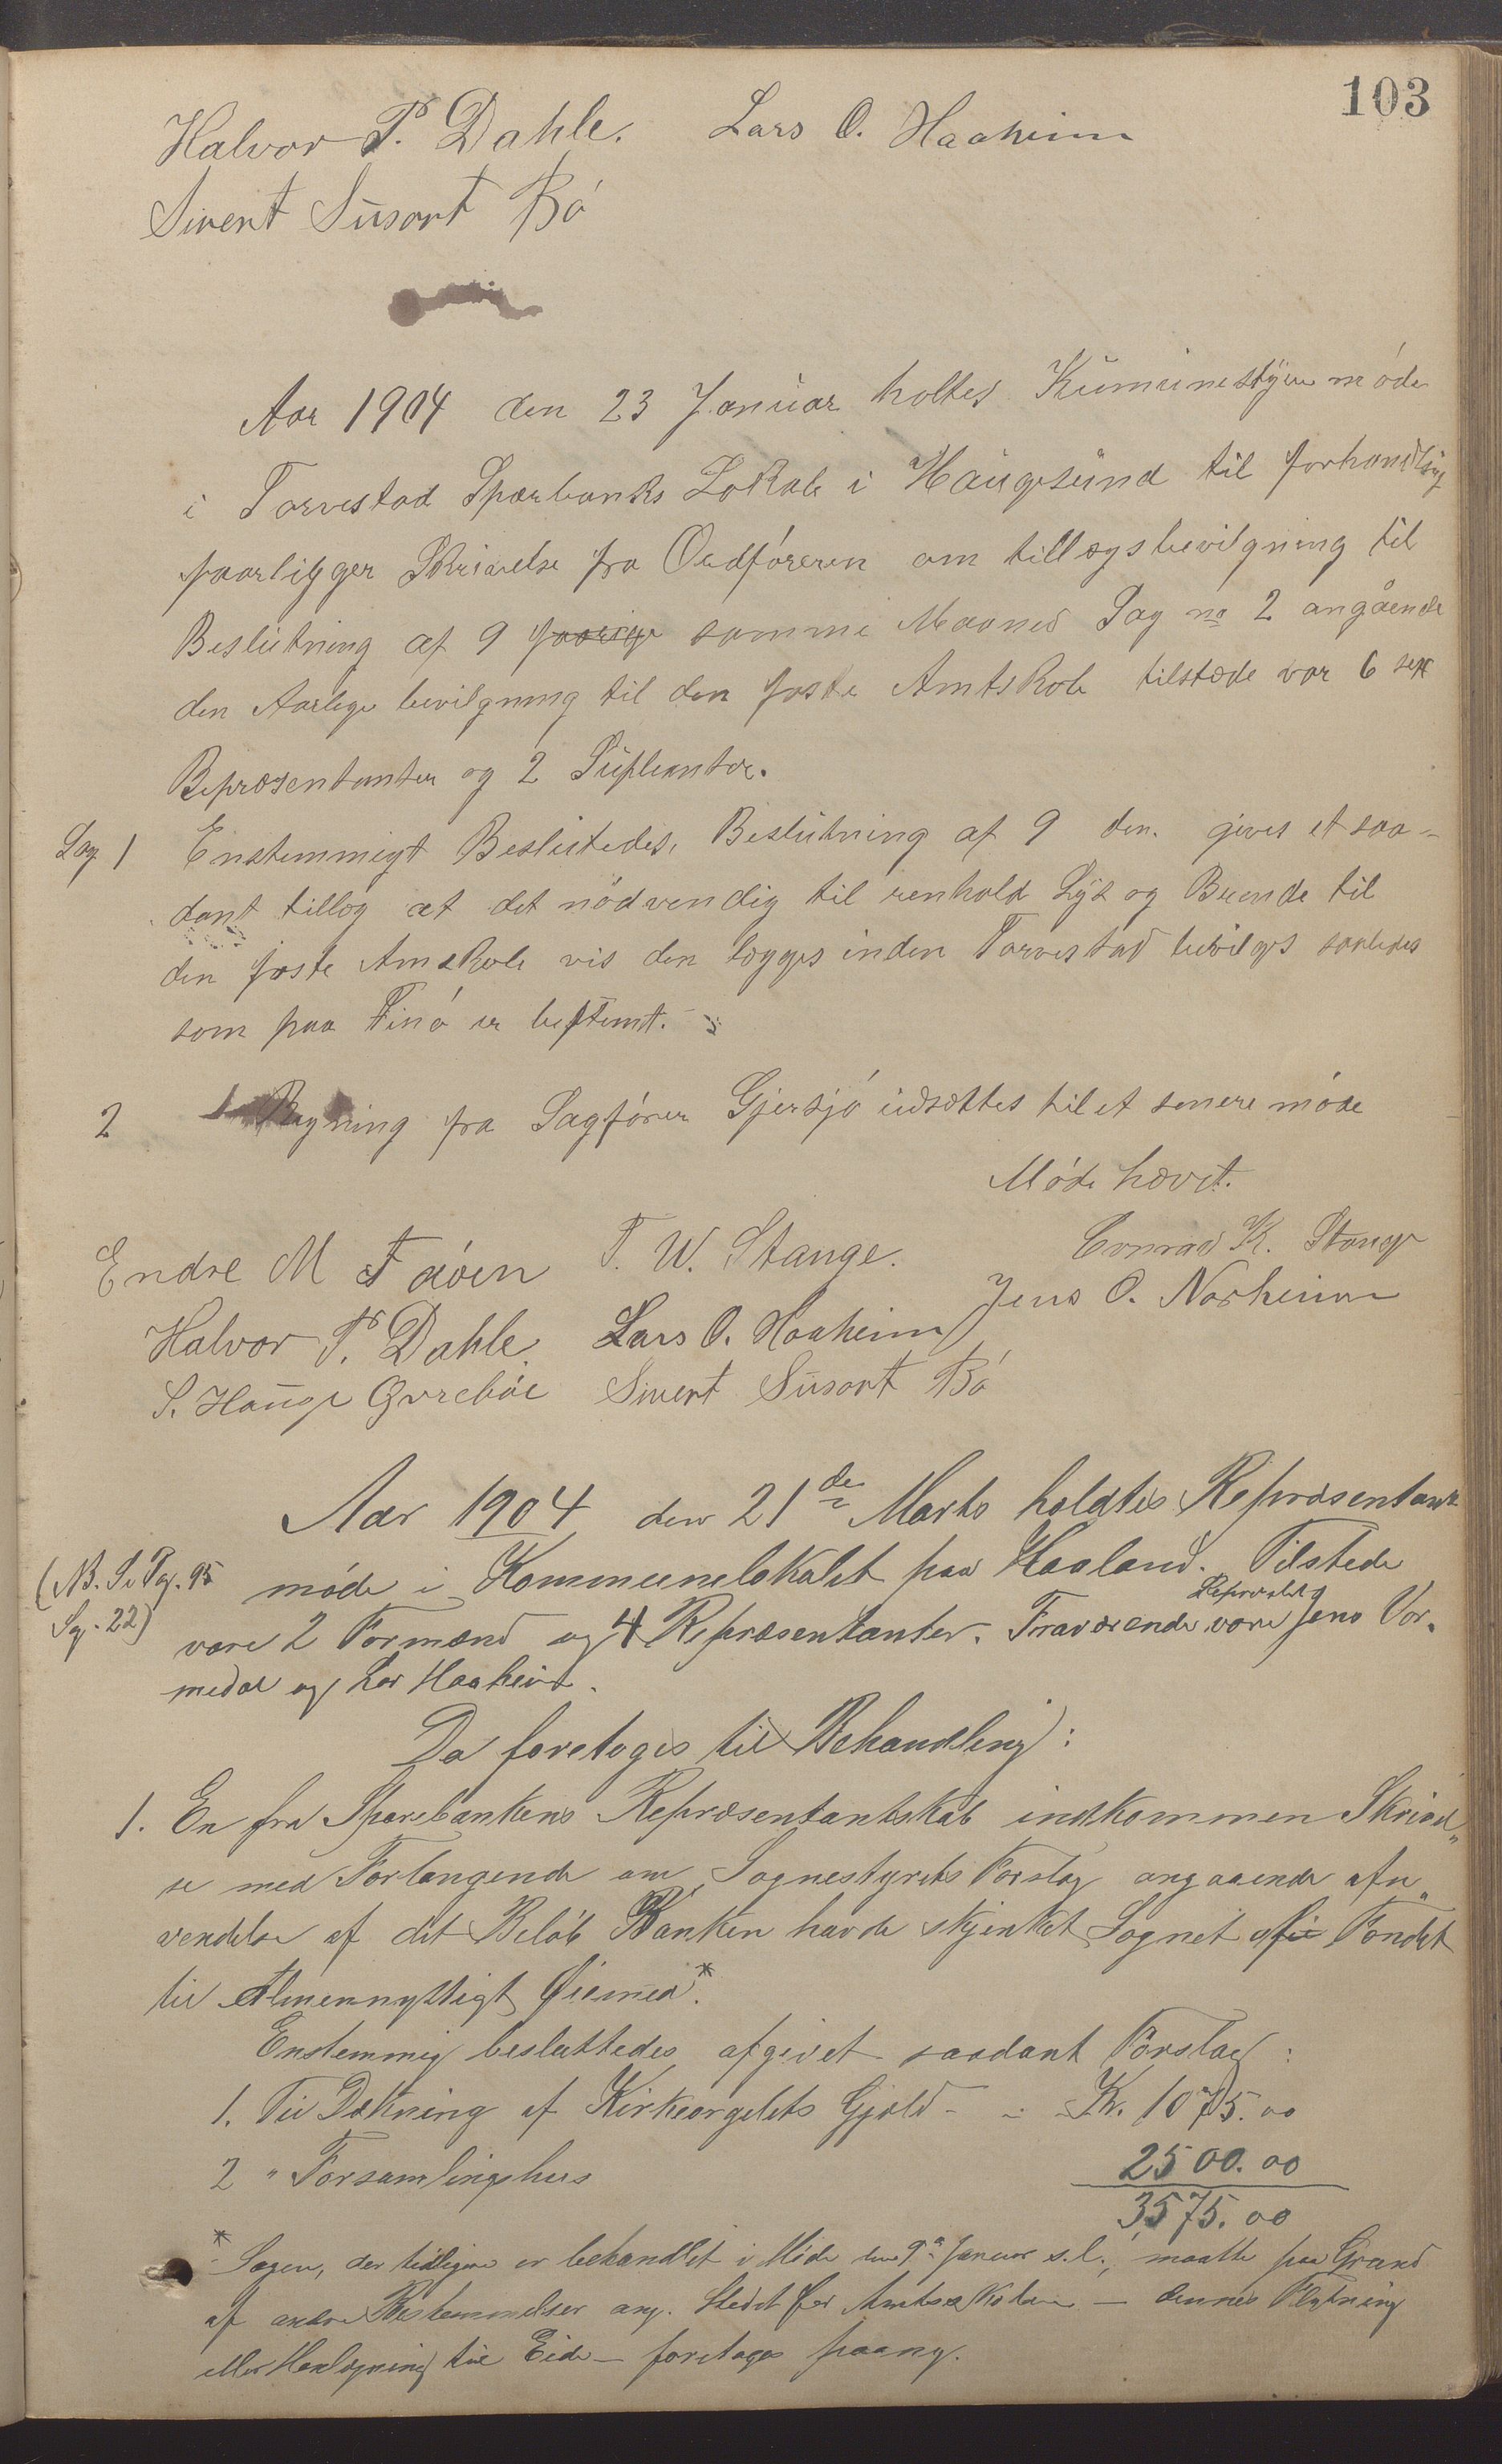 103
Halvor P. Dahle. Lars O. Haaheim
Sivert Susort Bö
Aar 1904 den 23 Januar holtes Kumunestyremöde
i Torvestad Sparbanks Lokale i Haugesund til forhandling
foorligger Skrivelse fra Ordföreren om tillægsbevilgning til
Beslutning af 9 samme Maaned Sag no 2 angående
den Aarlige bevilgning til den faste Amtskole tilstæde var 6 sex
Repræsentanter og 2 Supleanter.
Sag 1 Enstemmigt Beslutedes, Beslutning af 9 den. gives et saa-
dant tillæg at det nödvendig til renhold Lys og Brende til
den faste Amskole vis den lægges inden Torvestad bevilges saaledes
som paa Finö er bestemt.
2 Regning fra Sagförer Gjersjö udsættes til et senere möde
Möde hævet.
Endre M Faöen T. W. Stange. Conrad K. Stange
Halvor P. Dahle. Lars O. Haaheim Jens O. Norheim
S. Hauge Qvreböe Sivert Susort Bö
Aar 1904 den 21de Marts holdtes Repræsentant
(NB. Se Pag. 95 möde i Kommunelokalet paa Haaland. Tilstede
Sg. 22) vare 2 Formænd og 4 Repræsentanter. Fraværende vare Jens Vor-
medal og Lar Haaheim.
Da foretoges til Behandling:
1. En fra Sparebankens Repræsentantskab indkommen Skrivel-
se med Forlangende om Sognestyrets Forslag angaaende afn-
vendelse af det Beløb Banken havde skjenket Sognet af Fondet
til Almennyttigt Øiemed*.
Enstemmig besluttedes afgivet saadant Forslag:
1. Til Dækning af Kirkeorgelets Gjæld - - Kr. 1075.00
2 " Forsamlingshus 2500.00
3575.00
* Sagen, der tidligere er behandlet i Møde den 9de Januar s.l., maatte paa Grund
af andre Bestemmelser ang. Stedet for Amtsskolen — dennes Flytning
eller Henlægning til Eide — foretages paany.